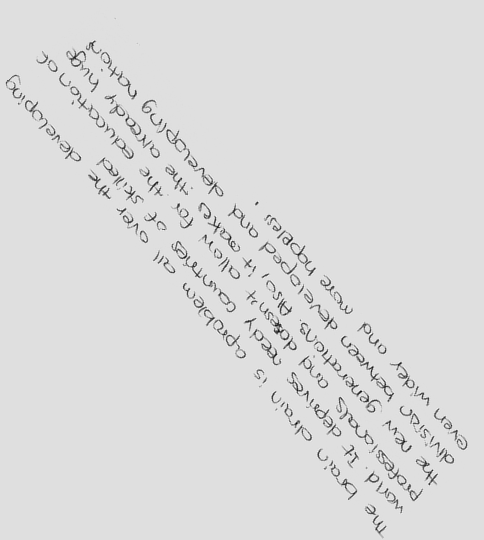 The brain drain is a problem all over the developing
world. It deprives needy countries of skilled
professionals and doesn't allow for the education of
the new generations. Also, it makes the already huge
division between developed and developing nations
even wider and more hopeless.